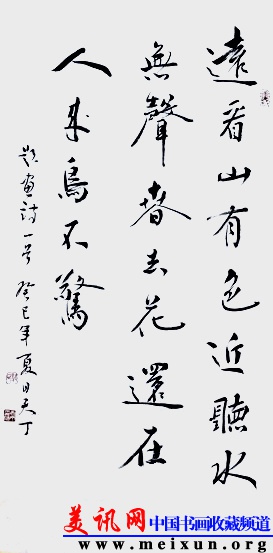 遠看山有色近聽水
無聲春去花還在
人來鳥不驚
題畫詩一首 癸巳年夏月天丁
美讯网 中国书画收藏频道
www.meixun.org